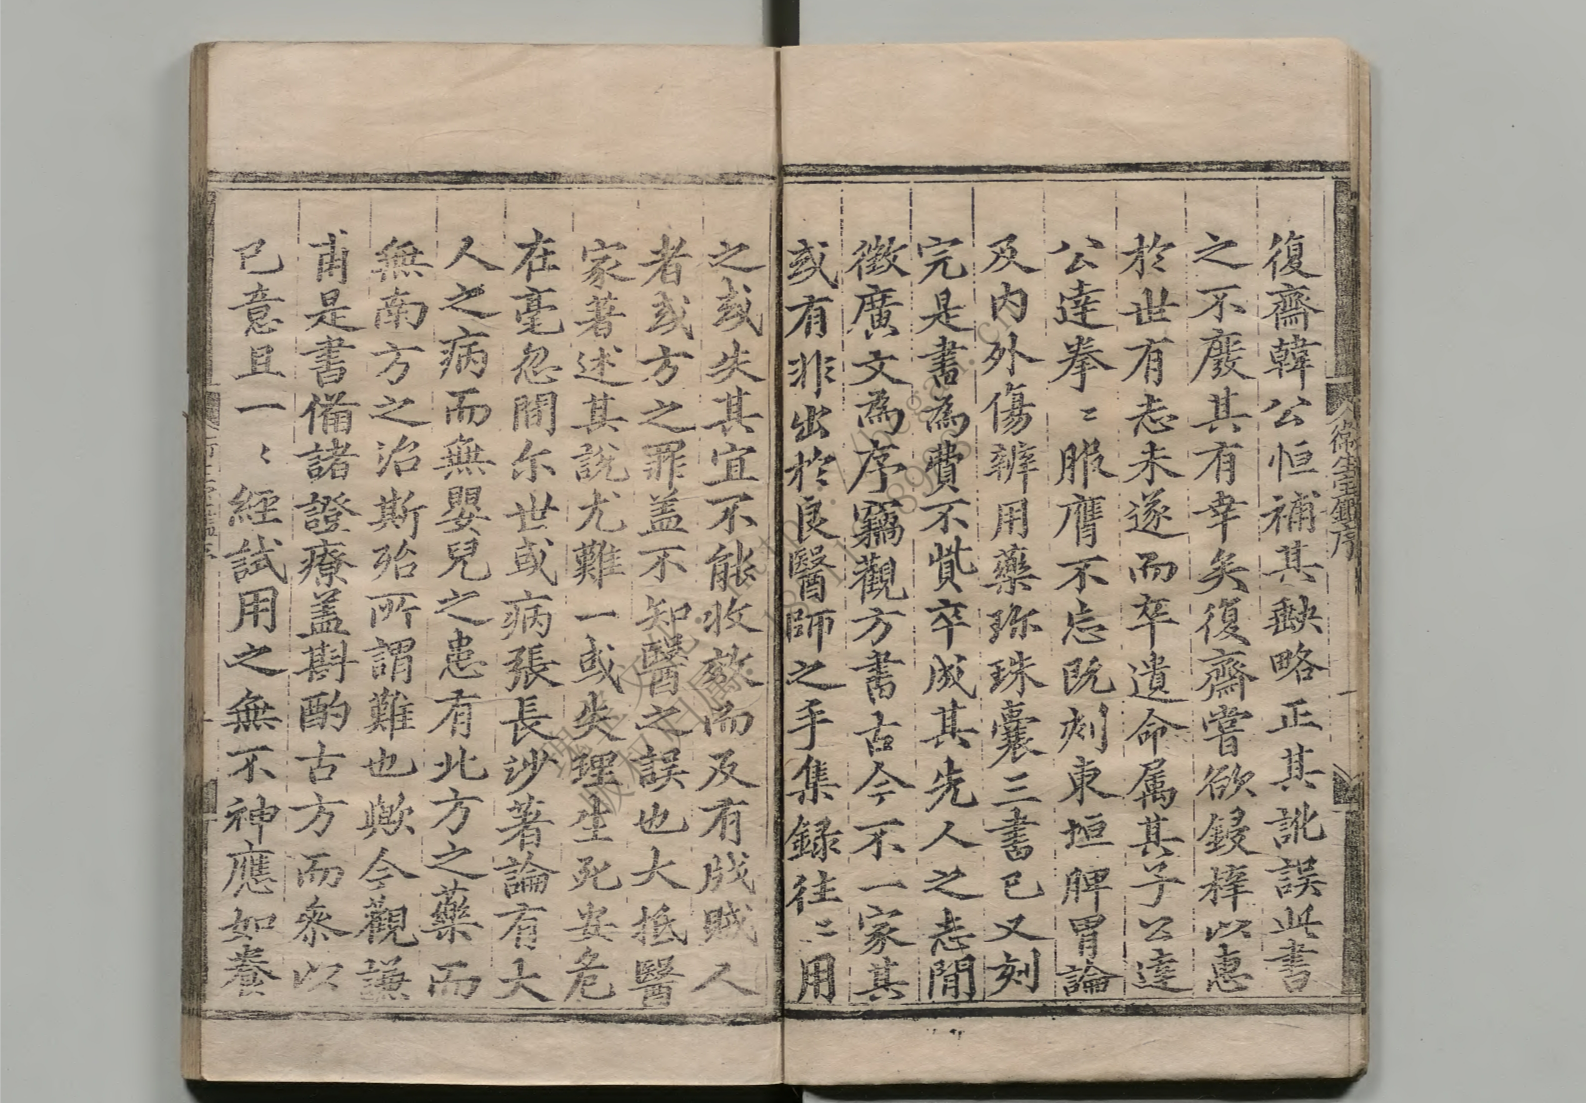 復齋韓公恒補其缺略正其訛誤此書
之不廢其有幸矣復齋嘗欲鋟梓以惠
於世有志未遂而卒遺命属其子公達
公達拳〻服膺不忘既刻東垣脾胃論
及内外傷辨用藥珎珠囊三書已又刻
完是書為費不貲卒成其先人之志間
徵廣文為序竊觀方書古今不一家其
或有非出於良醫師之手集録往〻用
之或失其宜不能收效而及有戕賊人
者或方之罪盖不知醫之誤也大抵醫
家著述其說尤難一或失理生死安危
在毫忽間尓世或病張長沙著論有大
人之病而無嬰兒之患有北方之藥而
無南方之治斯殆所謂難也歟今觀謙
甫是書備諸證療盖斟酌古方而叅以
己意且一〻經試用之無不神應如養
衛生寶鑑序